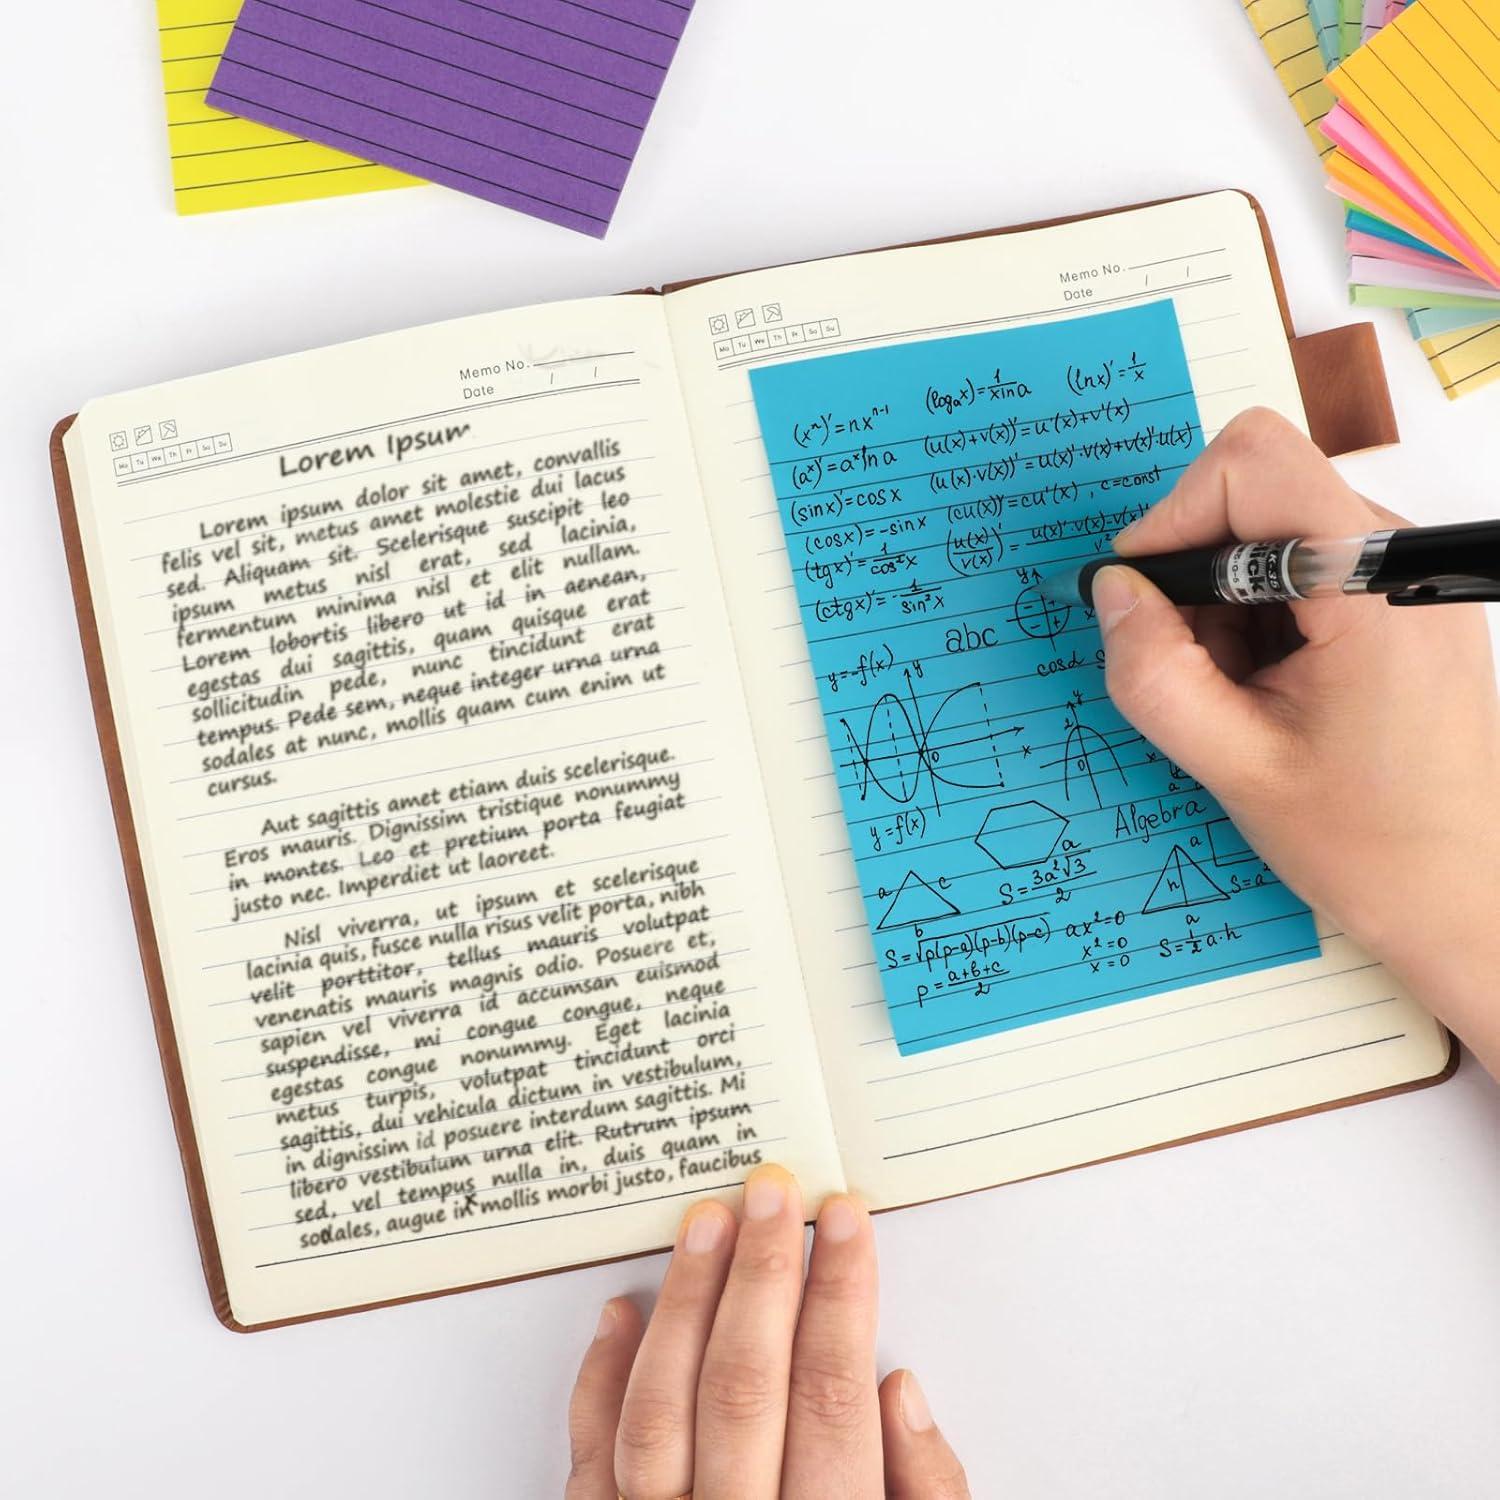 Memo No.
Date / /
Mo Tu We Th Fr Sa Su
Lorem Ipsum
Lorem ipsum dolor sit amet, convallis
felis vel sit, metus amet molestie dui lacus
sed. Aliquam sit. Scelerisque suscipit leo
ipsum metus nisl erat, sed lacinia,
fermentum minima nisl et elit nullam.
Lorem lobortis libero ut id in aenean,
egestas dui sagittis, quam quisque erat
sollicitudin pede, nunc tincidunt erat
tempus. Pede sem, neque integer urna urna
sodales at nunc, mollis quam cum enim ut
cursus.
Aut sagittis amet etiam duis scelerisque.
Eros mauris. Dignissim tristique nonummy
in montes. Leo et pretium porta feugiat
justo nec. Imperdiet ut laoreet.
Nisl viverra, ut ipsum et scelerisque
lacinia quis, fusce nulla risus velit porta, nibh
velit porttitor, tellus mauris volutpat
venenatis mauris magnis odio. Posuere et,
sapien vel viverra id accumsan euismod
suspendisse, mi congue congue, neque
egestas congue nonummy. Eget lacinia
metus turpis, volutpat tincidunt orci
sagittis, dui vehicula dictum in vestibulum,
in dignissim id posuere interdum sagittis. Mi
libero vestibulum urna elit. Rutrum ipsum
sed, vel tempus nulla in, duis quam in
sodales, augue in mollis morbi justo, faucibus
Memo No.
Date / /
Mo Tu We Th Fr Sa Su
(xⁿ)'=nxⁿ⁻¹ (logₐx)=1/(x ln a) (ln x)'=1/x
(aˣ)'=aˣ ln a (u(x)+v(x))'=u'(x)+v'(x)
(sin x)'=cos x (u(x)·v(x))'=u(x)'·v(x)+v(x)'·u(x)
(cos x)=-sin x (cu(x))'=cu'(x), c=const
(tg x)'=1/cos²x (u(x)/v(x))'=u(x)'·v(x)-v(x)'
(ctg x)'=-1/sin²x
y
abc
x
cos α
y=-f(x) y
y
2
0 x
0 x
y=f(x)
Algebra
a
S=3a²√3/2
a c
b
a
h
a
S=a²
S=√p(p-a)(p-b)(p-c)
p=(a+b+c)/2
ax²=0
x²=0
x=0
S=½a·h